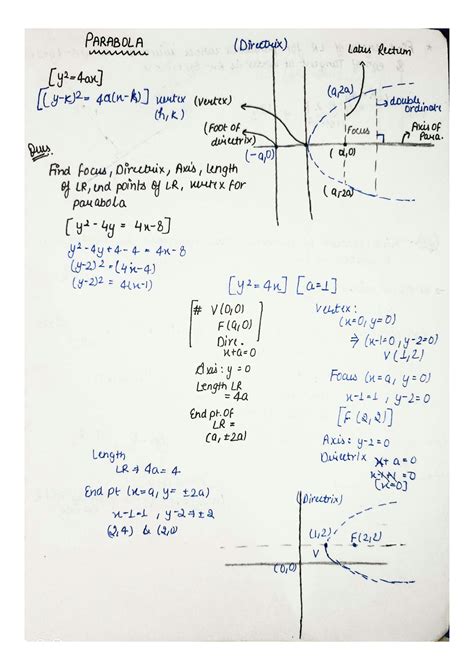 PARABOLA
(Directrix)
Latus Rectum
[y²=4ax]
[(y-k)² = 4a(x-h)] vertex (h, k)
(vertex)
(a,2a)
double ordinate
(Foot of directrix)
Focus
Axis of Para.
(-a,0)
(a,0)
(a,-2a)
Ques.
Find focus, Directrix, Axis, length
of LR, end points of LR, vertex for
parabola
[y²-4y = 4x-8]
y²-4y+4-4 = 4x-8
(y-2)² = (4x-4)
(y-2)² = 4(x-1)
[y²=4x] [a=1]
# V(0,0)
F(a,0)
Dire.
x+a=0
Axis: y=0
Length LR
= 4a
End pt. of
LR =
(a, ±2a)
Vertex:
(x=0, y=0)
⇒ (x-1=0, y-2=0)
V(1,2)
Focus (x=a, y=0)
x-1=1, y-2=0
[F(2,2)]
Axis: y-2=0
Directrix x+a=0
[x=0]
Length
LR ⇒ 4a=4
End pt (x=a, y=±2a)
x-1=1, y-2=±2
(2,4) & (2,0)
(Directrix)
(1,2)
V
F(2,2)
(0,0)